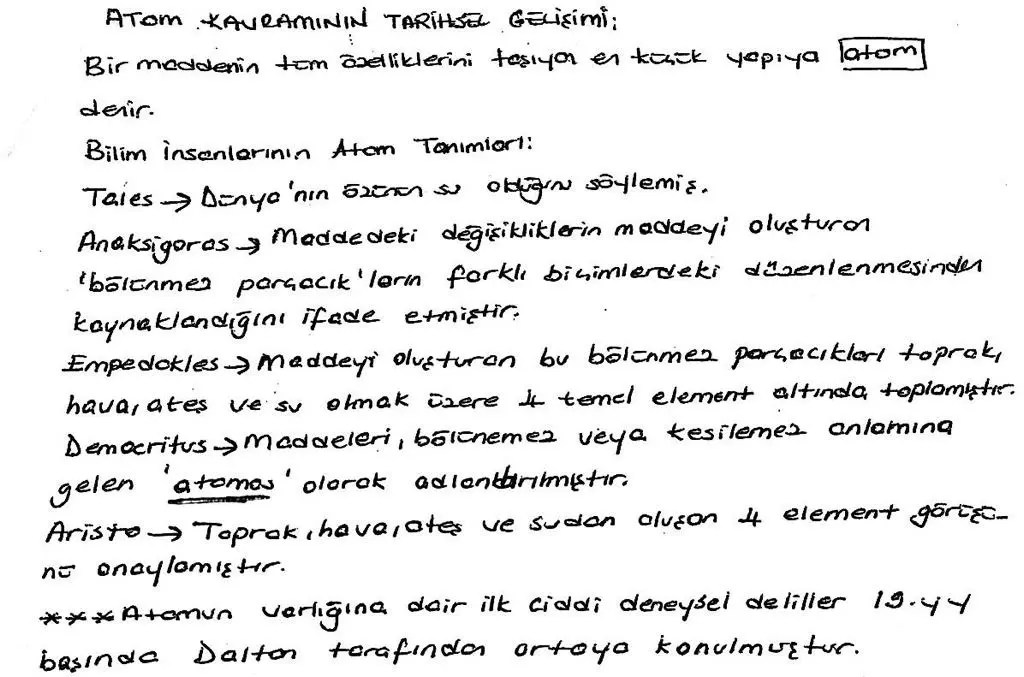 ATOM KAVRAMININ TARİHSEL GELİŞİMİ;
Bir maddenin tüm özelliklerini taşıyan en küçük yapıya atom
denir.
Bilim insanlarının Atom Tanımları:
Tales → Dünya'nın özünün su olduğunu söylemiş.
Anaksigoras → Maddedeki değişikliklerin maddeyi oluşturan
'bölünmez parçacık'ların farklı biçimlerdeki düzenlenmesinden
kaynaklandığını ifade etmiştir.
Empedokles → Maddeyi oluşturan bu bölünmez parçacıkları toprak,
hava, ateş ve su olmak üzere 4 temel element altında toplamıştır.
Democritus → Maddeleri, bölünemez veya kesilemez anlamına
gelen 'atomos' olarak adlandırılmıştır.
Aristo → Toprak, hava, ateş ve sudan oluşan 4 element görüşü-
nü onaylamıştır.
***Atomun varlığına dair ilk ciddi deneysel deliller 19.yy
başında Dalton tarafından ortaya konulmuştur.